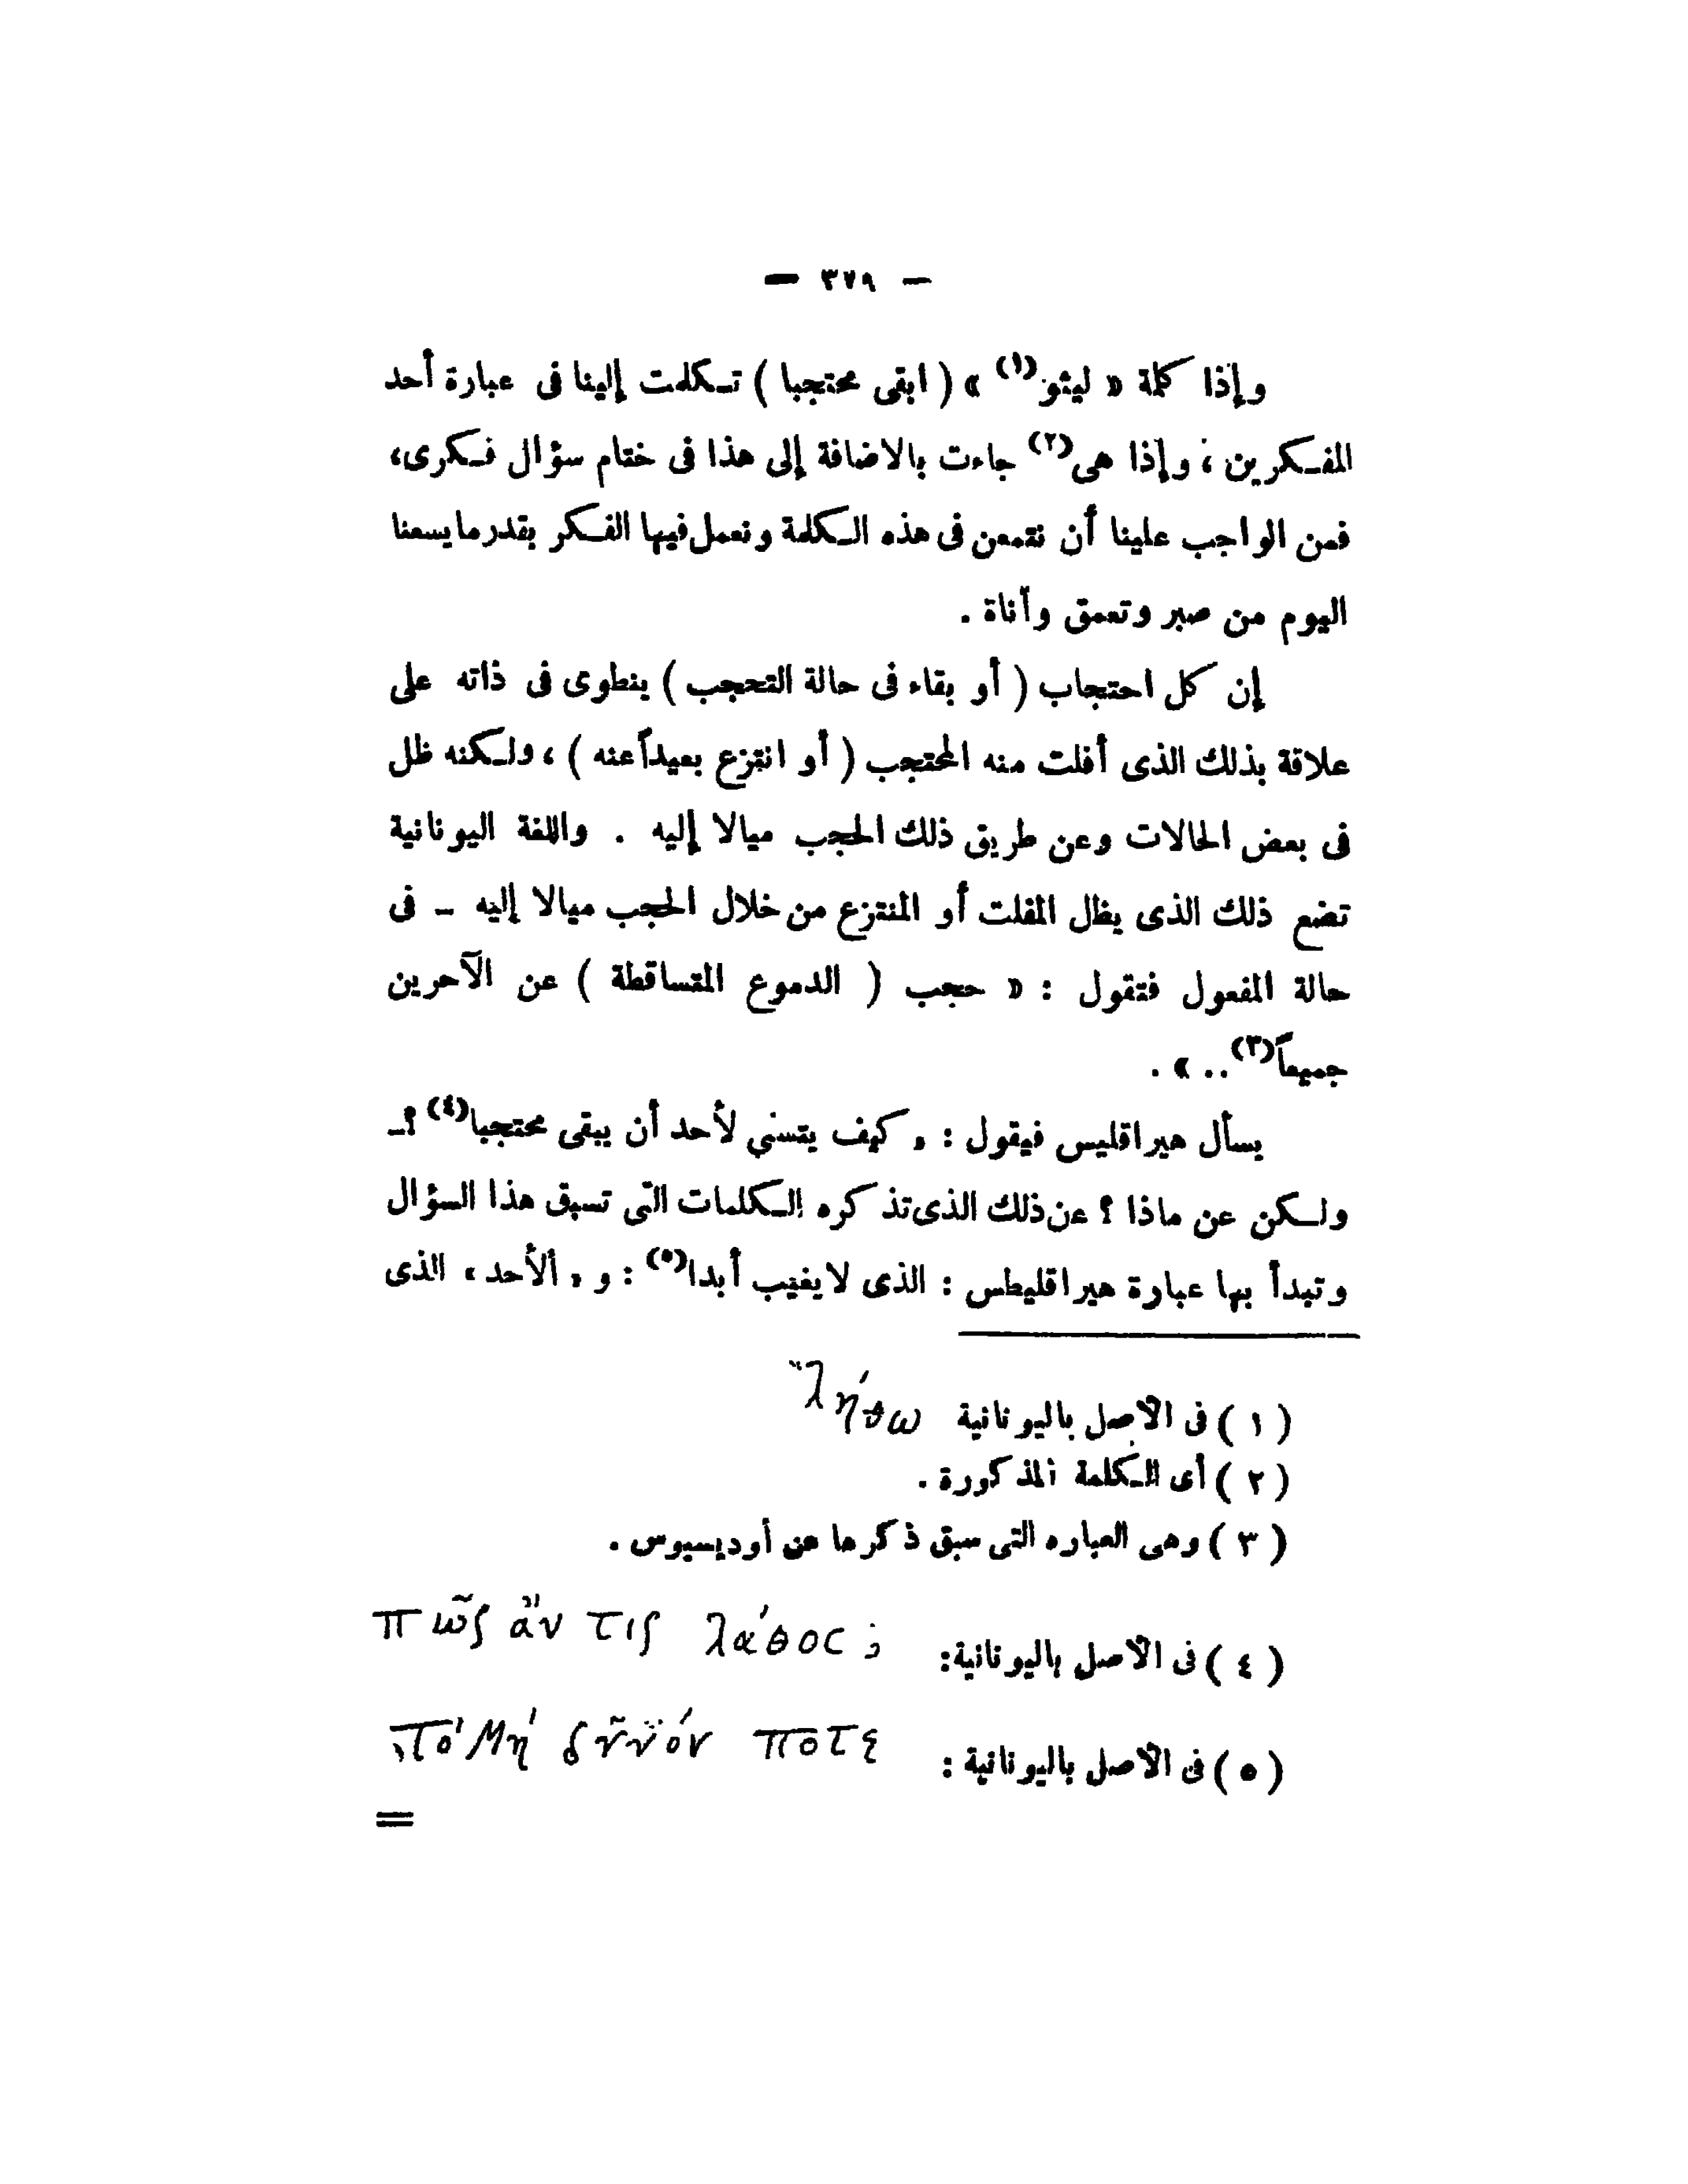 — ٣٧٩ —
وإذا كلمة « ليثو(١) » ( ابقى محتجبا ) تـكلمت إلينا فى عبارة أحد
المفـكرين ، وإذا هى(٢) جاءت بالاضافة إلى هذا فى ختام سؤال فـكرى،
فمن الواجب علينا أن نتمعن فى هذه الـكلمة ونعمل فيها الفـكر بقدر ما يسعنا
اليوم من صبر وتعمق وأناة .
إن كل احتجاب ( أو بقاء فى حالة التحجب ) ينطوى فى ذاته على
علاقة بذلك الذى أفلت منه المحتجب ( أو انتزع بعيداً عنه ) ، ولـكنه ظل
فى بعض الحالات وعن طريق ذلك الحجب ميالا إليه . واللغة اليونانية
تضع ذلك الذى يظل المفلت أو المنتزع من خلال الحجب ميالا إليه – فى
حالة المفعول فتقول : « حجب ( الدموع المتساقطة ) عن الآحرين
جميعاً(٣).. » .
يسأل هيراقليس فيقول : « كيف يتسنى لأحد أن يبقى محتجبا(٤) ؟ــ
ولـكن عن ماذا ؟ عن ذلك الذى تذكره الـكلمات التى تسبق هذا السؤال
وتبدأ بها عبارة هيراقليطس : الذى لا يغيب أبدا(٥) : و « ألأحد » الذى
( ١ ) فى الأصل باليونانية λήθω
( ٢ ) أى الـكلمة المذكورة .
( ٣ ) وهى العباره التى سبق ذكرها عن أوديسيوس .
( ٤ ) فى الأصل باليونانية: πῶς ἄν τις λάθοι ;
( ٥ ) فى الأصل باليونانية : ποτε
=